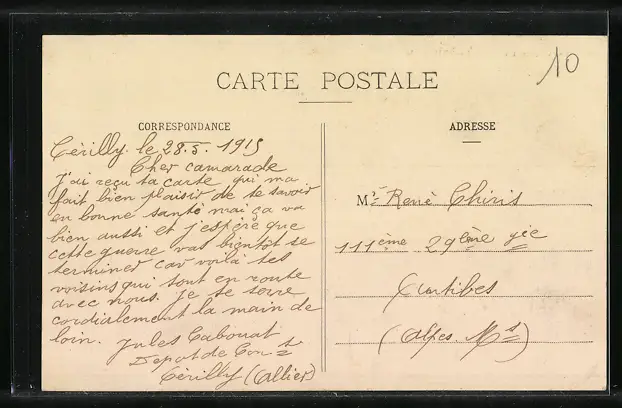 10
CARTE POSTALE
CORRESPONDANCE
ADRESSE
Cérilly. le 28.5.1915
Cher camarade
J'ai reçu ta carte qui ma
fait bien plaisir de te savoir
en bonne santé mai ça va
bien aussi et j'espère que
cette guerre vat bientôt se
terminer car voilà tes
voisins qui sont en route
avec nous. Je te serre
cordialement la main de
loin. Jules Cabouat
Depot de
Cérilly (Allier)
Mr René Chiris
111ème 29ème Cie
Antibes
(Alpes. Mes)